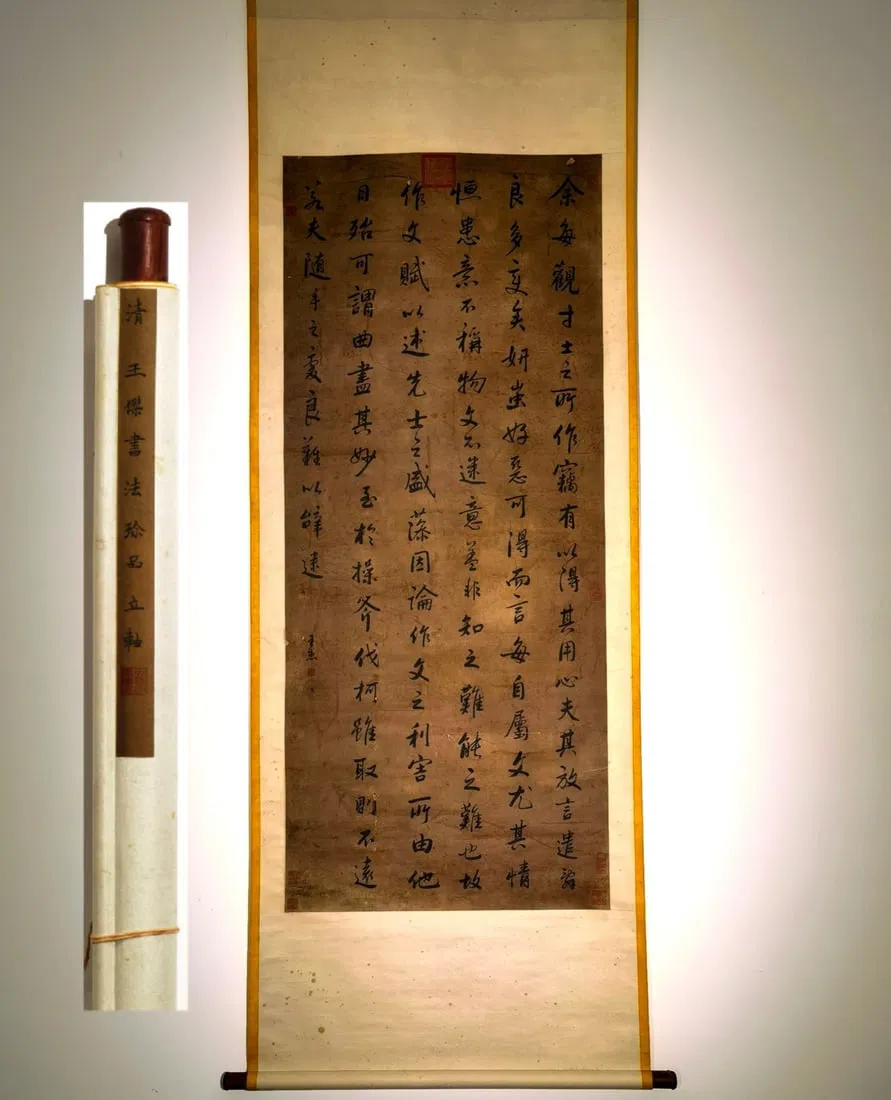 余每觀才士之所作竊有以得其用心夫其放言遣辭
良多變矣妍蚩好惡可得而言每自屬文尤其情
恒患意不稱物文不逮意蓋非知之難能之難也故
作文賦以述先士之盛藻因論作文之利害所由他
日殆可謂曲盡其妙至於操斧伐柯雖取則不遠
若夫随手之變良難以辭逮
王杰
清 王傑書法珍品立軸